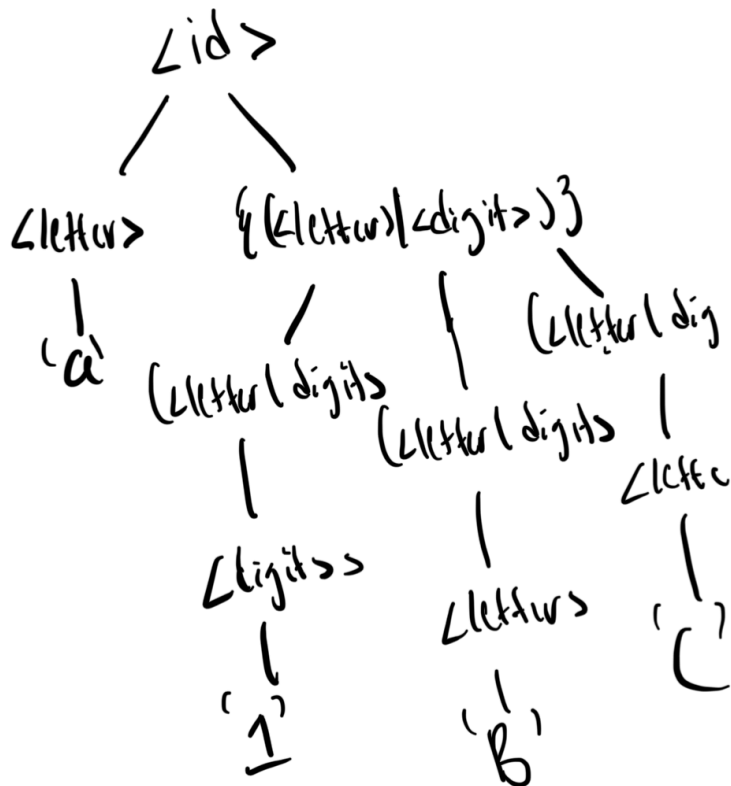 <id>
<letter> {(<letter>|<digit>)}
'a' (<letter|digit> (<letter|digit> (<letter|dig
<digit>> <letter> <lette
'1' 'B' 'C'